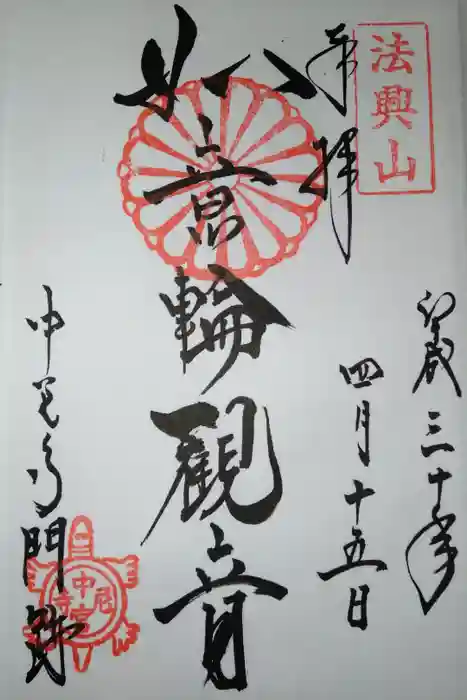 法興山
奉拝
平成三十年
四月十五日
如意輪観音
中宮寺門跡
中宮尼寺